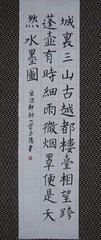 城裏三山古越都樓臺相望跨
蓬壺有時細雨微烟罩便是天
然水墨圖
宋陳軒詩